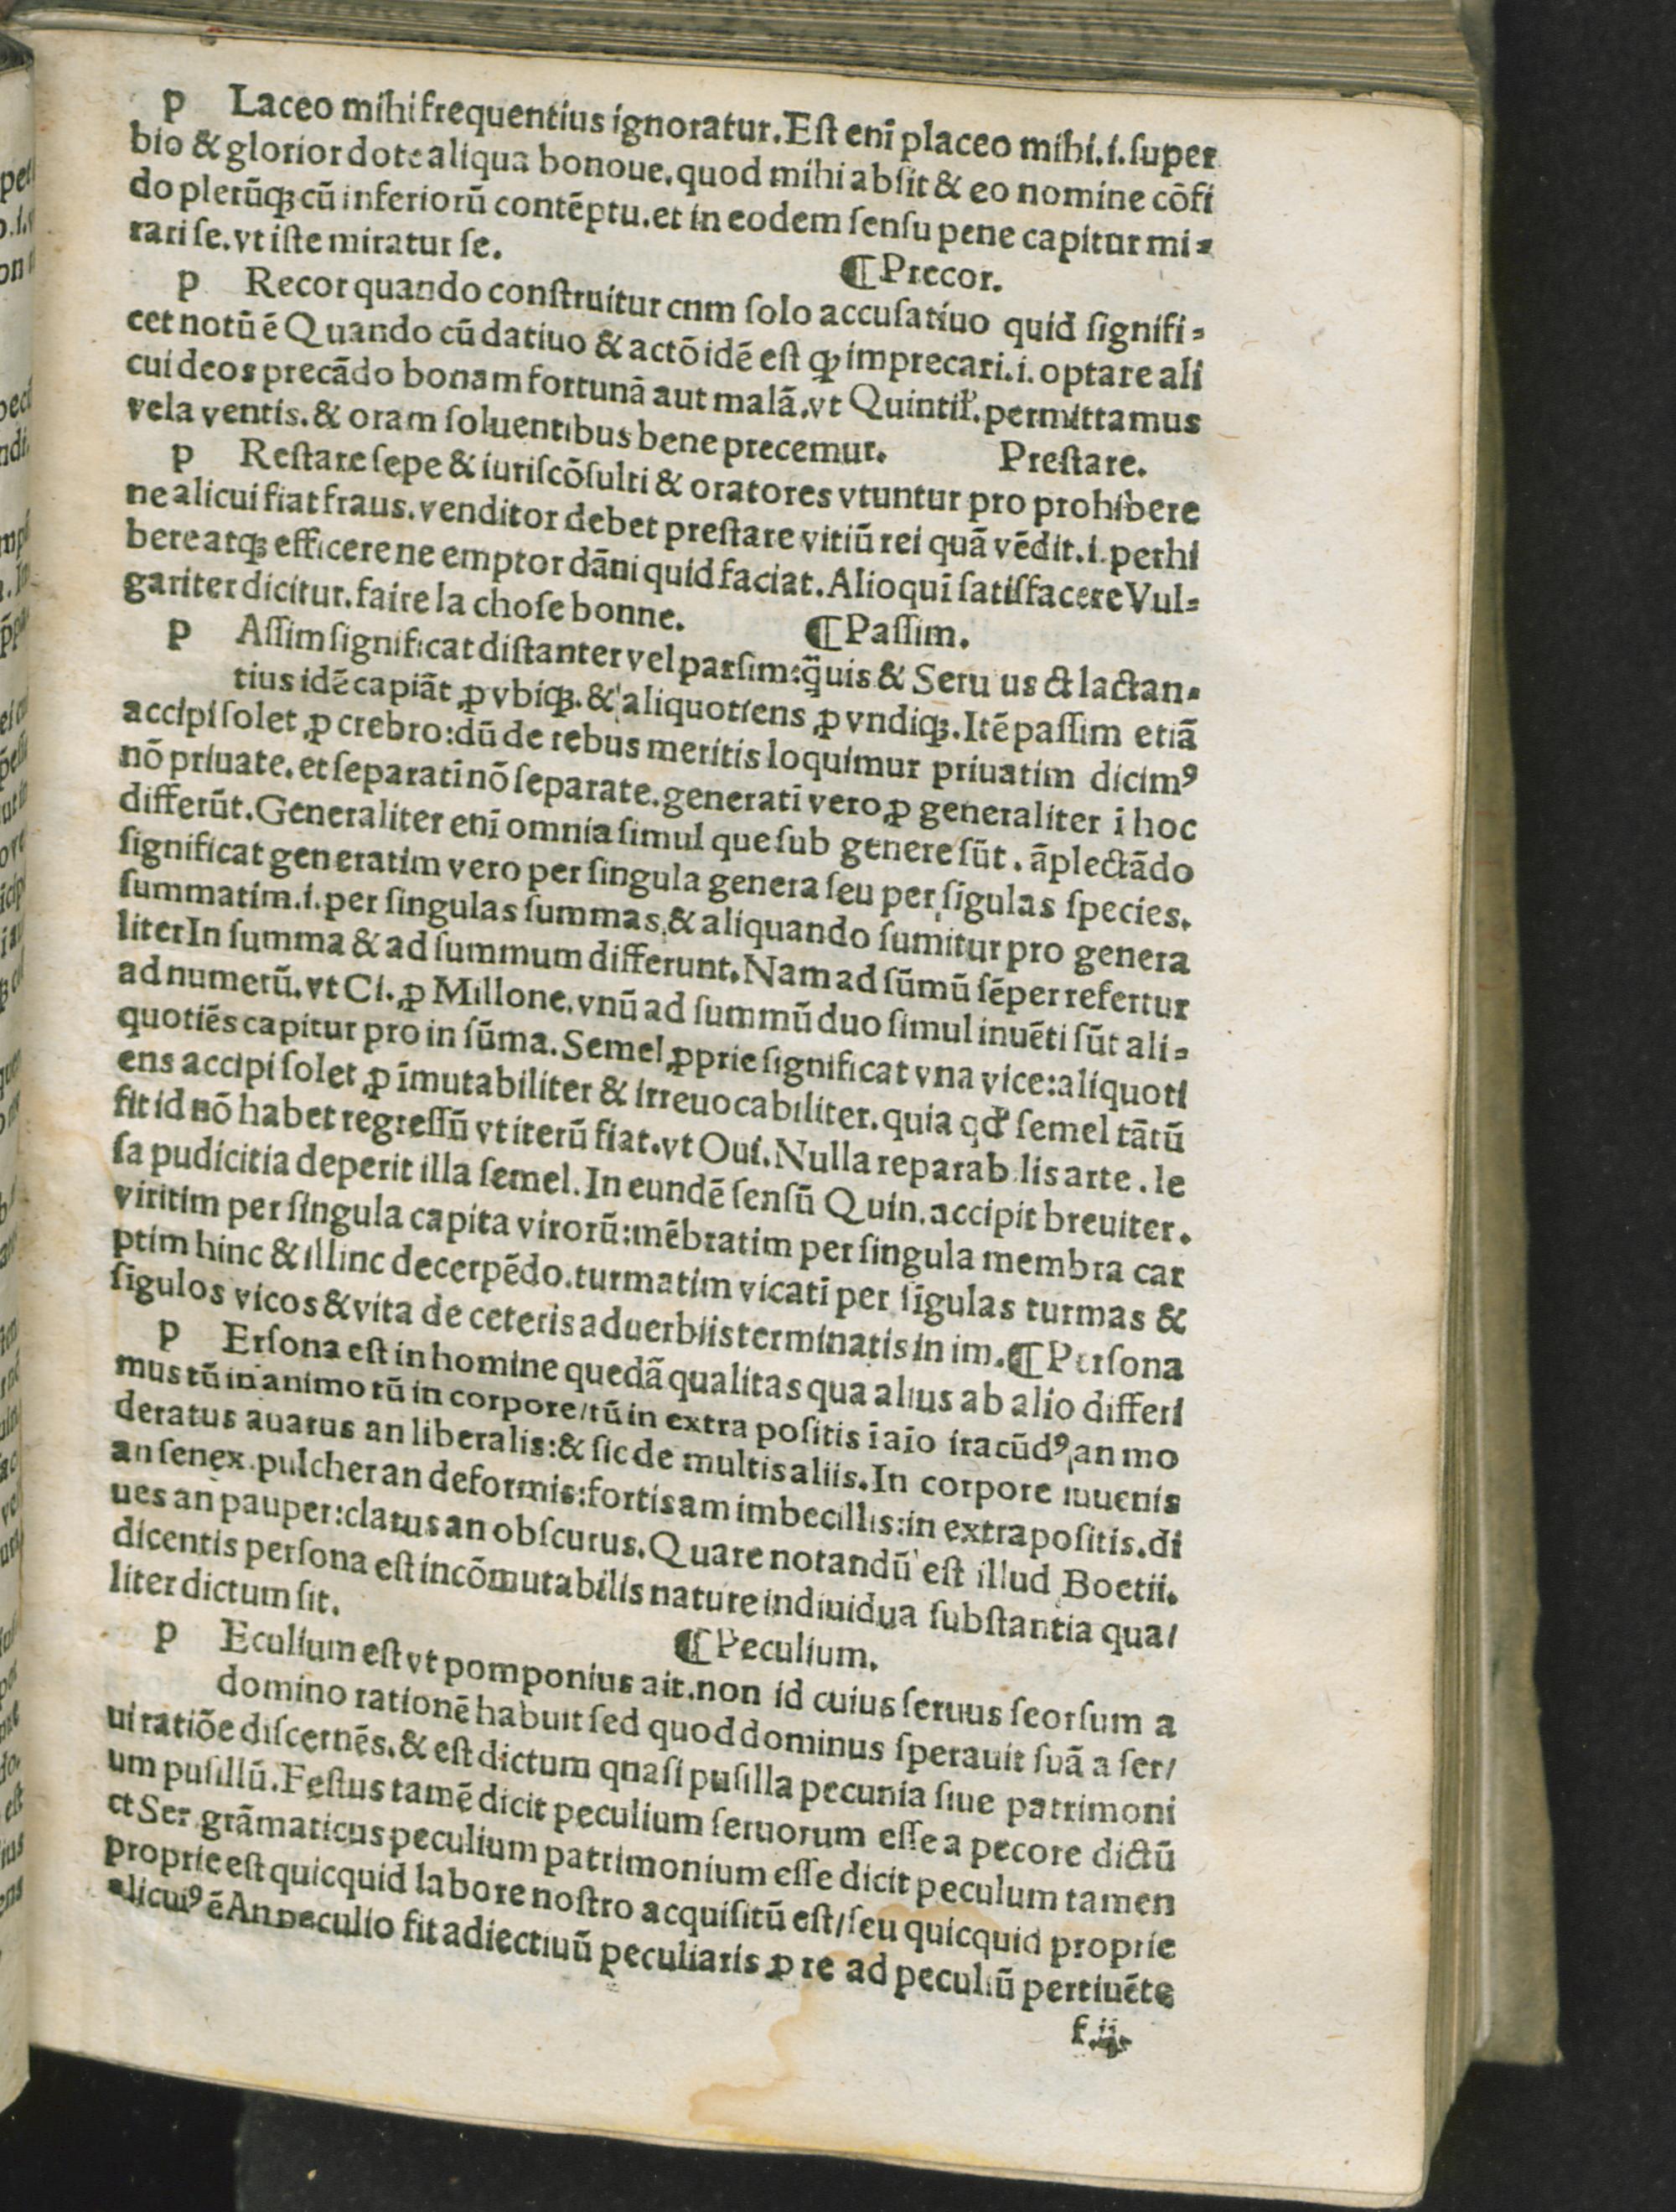 p Laceo mihi frequentius ignoratur. Eſt enī placeo mihi. i. ſuper
bio & glorior dote aliqua bonoue. quod mihi abſit & eo nomine cōfi
do plerūqꝫ cū inferiorū contēptu. et in eodem ſenſu pene capitur mi⸗
rari ſe. vt iſte miratur ſe.
¶ Precor.
p Recor quando conſtruitur cnm ſolo accuſatiuo quid ſignifi⸗
cet notū ē Quando cū datiuo & actō idē eſt ꝙ imprecari. i. optare ali
cui deos precādo bonam fortunā aut malā. vt Quintił. permittamus
vela ventis. & oram ſoluentibus bene precemur. Preſtare.
p Reſtare ſepe & iuriſcōſulti & oratores vtuntur pro prohibere
ne alicui fiat fraus. venditor debet preſtare vitiū rei quā vēdit. i. perhi
bere atqꝫ efficere ne emptor dāni quid faciat. Alioquī ſatiſfacere Vul⸗
gariter dicitur. faire la choſe bonne. ¶ Paſſim.
p Aſſim ſignificat diſtanter vel parſim: q̄uis & Seru us ct lactan⸗
tius idē capiāt ꝓ vbiqꝫ. & aliquotiens ꝓ vndiqꝫ. Itē paſſim etiā
accipi ſolet ꝓ crebro: dū de rebus meritis loquimur priuatim dicimꝰ
nō priuate. et ſeparatī nō ſeparate. generatī vero ꝓ generaliter ī hoc
differūt. Generaliter enī omnia ſimul que ſub genere ſūt. āplectādo
ſignificat generatim vero per ſingula genera ſeu per ſigulas ſpecies.
ſummatim. i. per ſingulas ſummas, & aliquando ſumitur pro genera
liter In ſumma & ad ſummum differunt. Nam ad ſūmū ſēper refertur
ad numerū. vt Ci. ꝓ Millone. vnū ad ſummū duo ſimul inuēti ſūt ali⸗
quotiēs capitur pro in ſūma. Semel ꝓprie ſignificat vna vice: aliquoti
ens accipi ſolet ꝓ īmutabiliter & irreuocabiliter. quia qď ſemel tātū
fit id nō habet regreſſū vt iterū fiat. vt Oui. Nulla reparab lis arte. le
ſa pudicitia deperit illa ſemel. In eundē ſenſū Quin. accipit breuiter.
viritim per ſingula capita virorū: mēbratim per ſingula membra car
ptim hinc & illinc decerpēdo. turmatim vicatī per ſigulas turmas &
ſigulos vicos & vita de ceteris aduerbiis terminatis in im. ¶ Perſona
p Erſona eſt in homine quedā qualitas qua alius ab alio differi
mus tū in animo tū in corpore / tū in extra poſitis ī aīo iracūdꝰ, an mo
deratus auarus an liberalis: & ſic de multis aliis. In corpore iuuenis
an ſenex. pulcher an deformis: fortis am imbecillis: in extra poſitis. di
ues an pauper: clarus an obſcurus. Quare notandū eſt illud Boetii.
dicentis perſona eſt incōmutabilis nature indiuidua ſubſtantia qua/
liter dictum ſit.
¶ Peculium.
p Eculium eſt vt pomponius ait. non id cuius ſeruus ſeorſum a
domino rationē habuit ſed quod dominus ſperauit ſuā a ſer/
ui ratiōe diſcernēs. & eſt dictum qnaſi puſilla pecunia ſiue patrimoni
um puſillū. Feſtus tamē dicit peculium ſeruorum eſſe a pecore dictū
et Ser. grāmaticus peculium patrimonium eſſe dicit peculum tamen
proprie eſt quicquid labore noſtro acquiſitū eſt / ſeu quicquid proprie
alicuiꝰ ē An peculio fit adiectiuū peculiaris ꝓ re ad peculiū pertiuēte
f.ii.